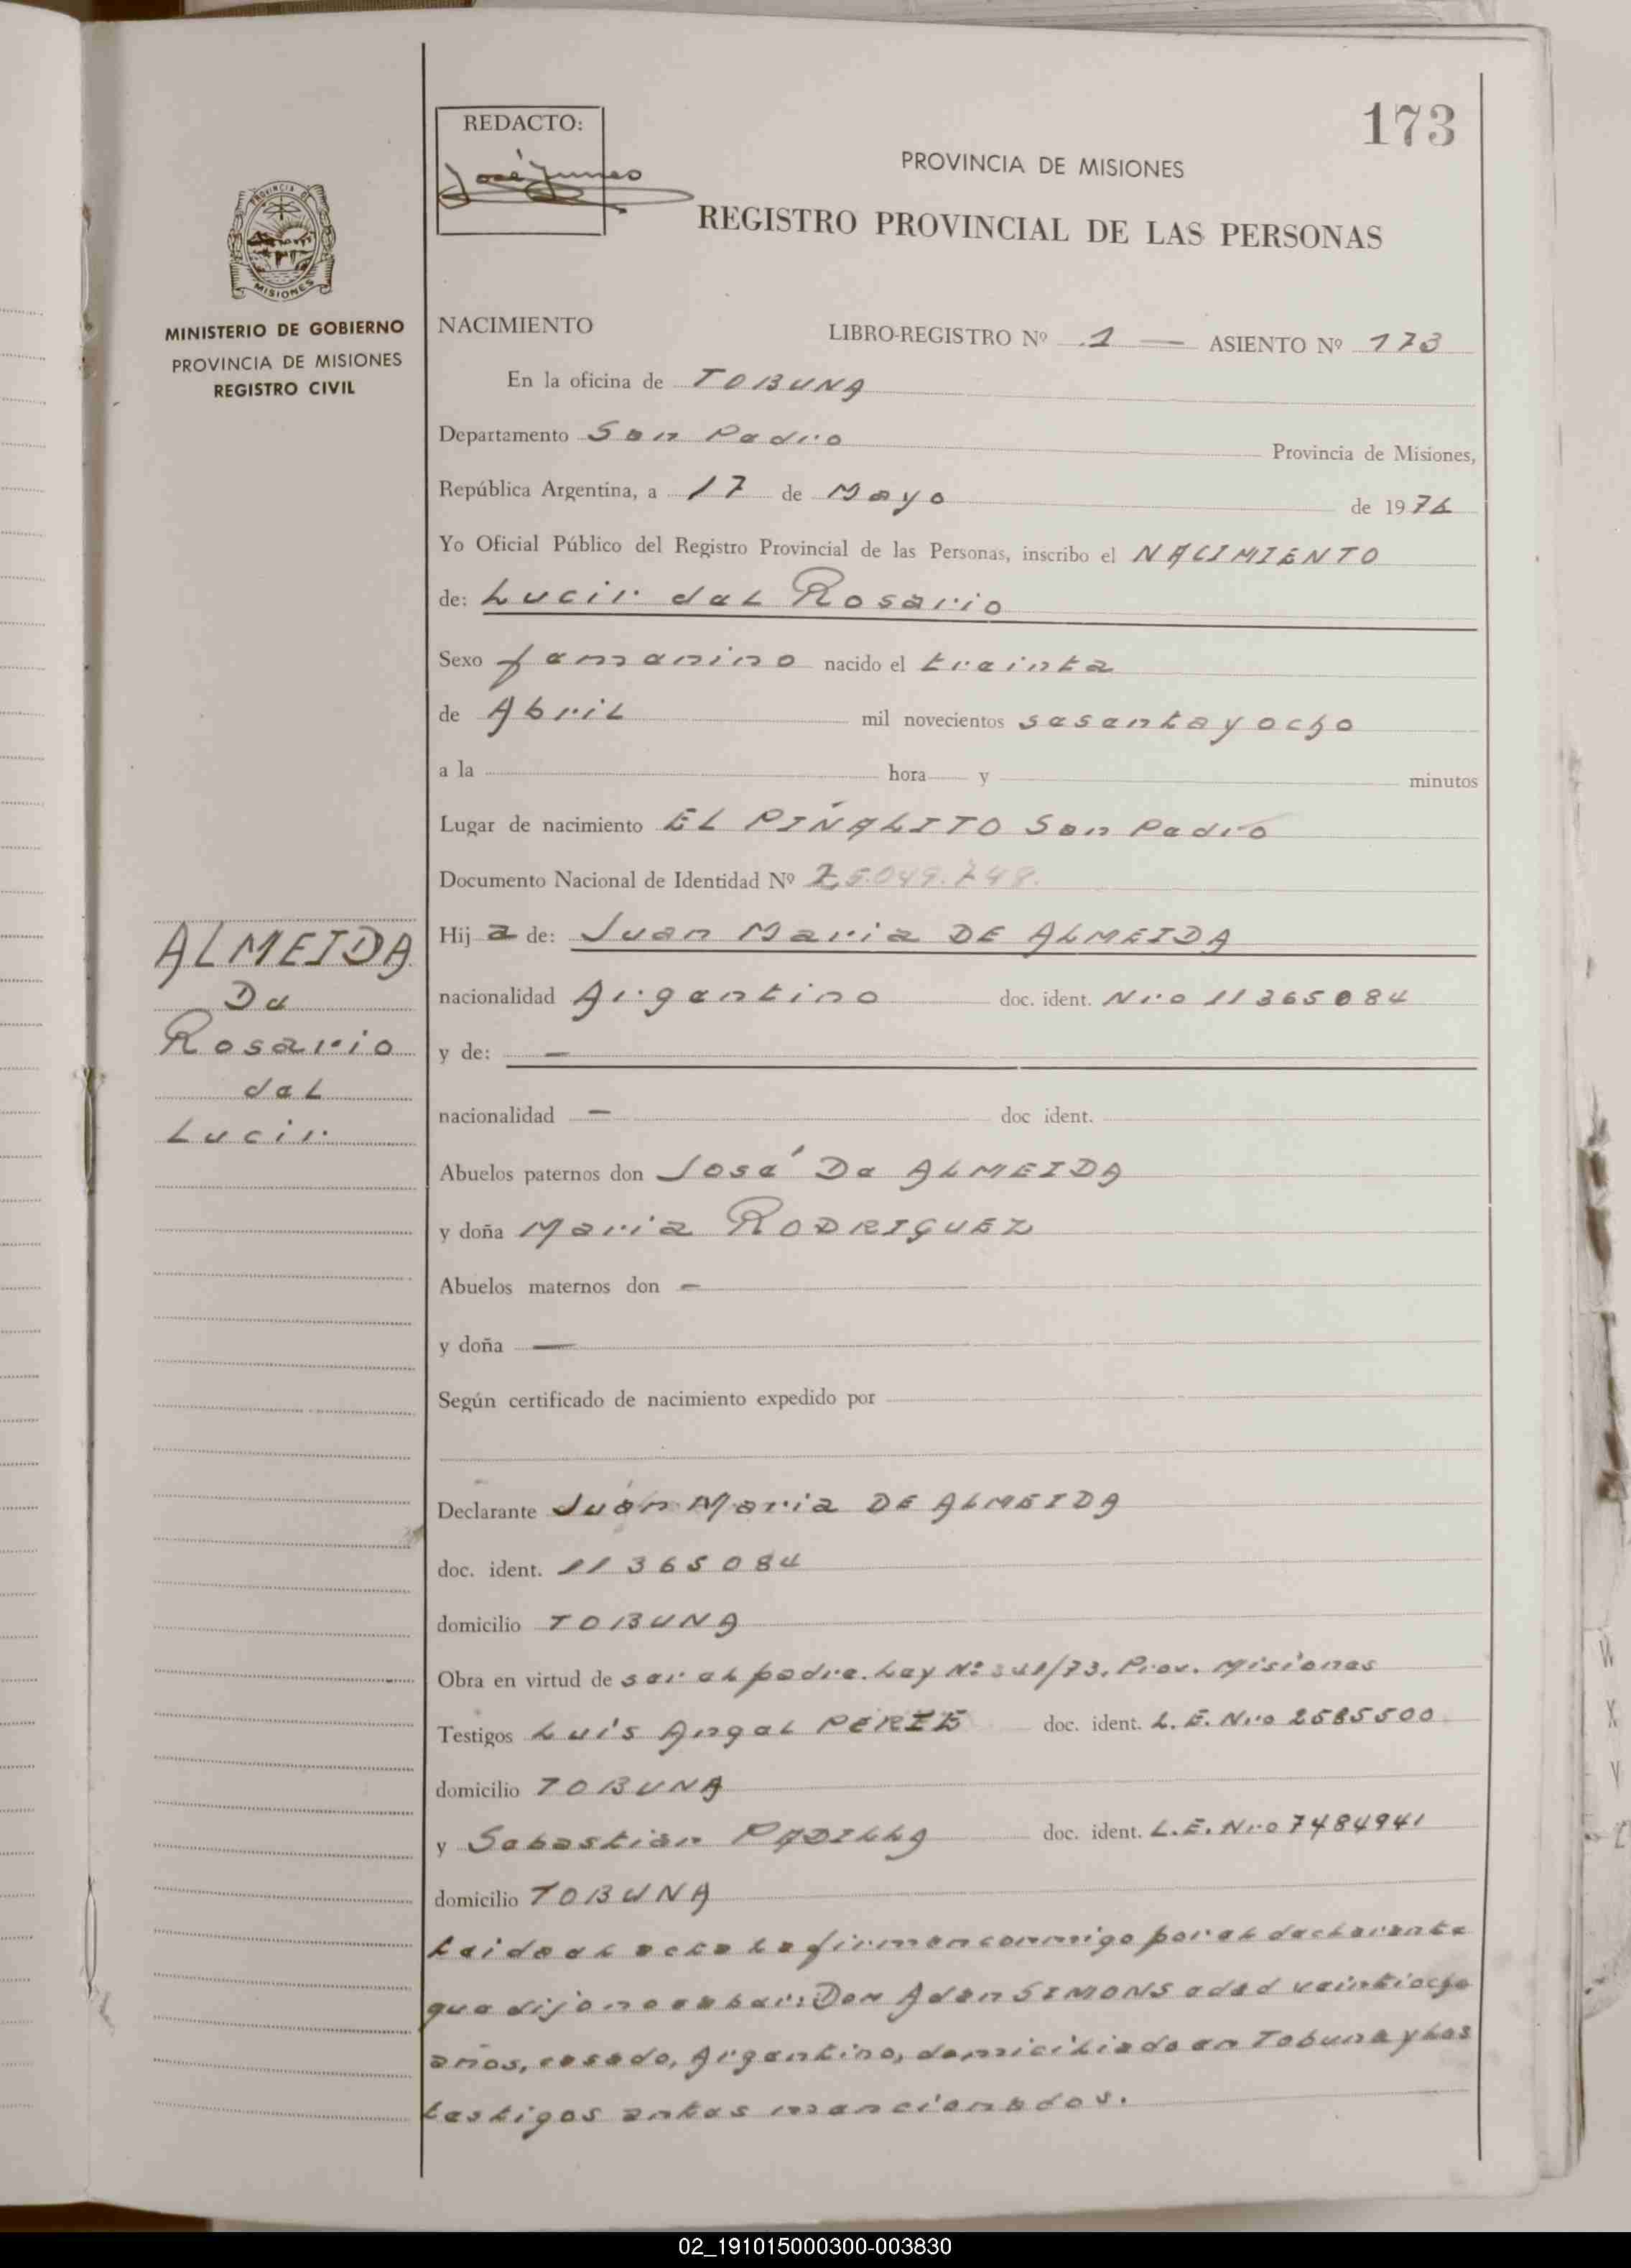 173
REDACTO:
José Juneo
PROVINCIA DE MISIONES
REGISTRO PROVINCIAL DE LAS PERSONAS
PROVINCIA DE
MISIONES
MINISTERIO DE GOBIERNO
PROVINCIA DE MISIONES
REGISTRO CIVIL
NACIMIENTO LIBRO-REGISTRO Nº 1 — ASIENTO Nº 173
En la oficina de TOBUNA
Departamento San Pedro Provincia de Misiones,
República Argentina, a 17 de Mayo de 1976
Yo Oficial Público del Registro Provincial de las Personas, inscribo el NACIMIENTO
de: Lucir del Rosario
Sexo femenino nacido el treinta
de Abril mil novecientos sesenta y ocho
a la hora y minutos
Lugar de nacimiento EL PIÑALITO San Pedro
Documento Nacional de Identidad Nº 25.049.748.
Hij a de: Juan Maria DE ALMEIDA
nacionalidad Argentino doc. ident. Nro 11365084
y de: —
nacionalidad — doc ident.
Abuelos paternos don José De ALMEIDA
y doña Maria RODRIGUEZ
Abuelos maternos don —
y doña —
Según certificado de nacimiento expedido por
Declarante Juan Maria DE ALMEIDA
doc. ident. 11365084
domicilio TOBUNA
Obra en virtud de ser el padre. Ley Nº 341/73. Prov. Misiones
Testigos Luis Angel PERIE doc. ident. L. E. Nro 2585500
domicilio TOBUNA
y Sebastián PADILLA doc. ident. L.E. Nro 7484941
domicilio TOBUNA
Leido el acta la firman conmigo por el declarante
que dijo no saber: Don Aden SIMONS edad veintiocho
años, casado, Argentino, domiciliado en Tobuna y los
testigos antes mencionados.
ALMEIDA
De
Rosario
del
Lucir
02_191015000300-003830